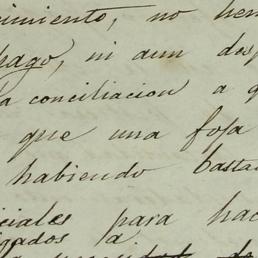 uimiento, no hem
hago, ni aun desp
la conciliacion a q
que una foja
habiendo basta
iciales para hac
igados a
de